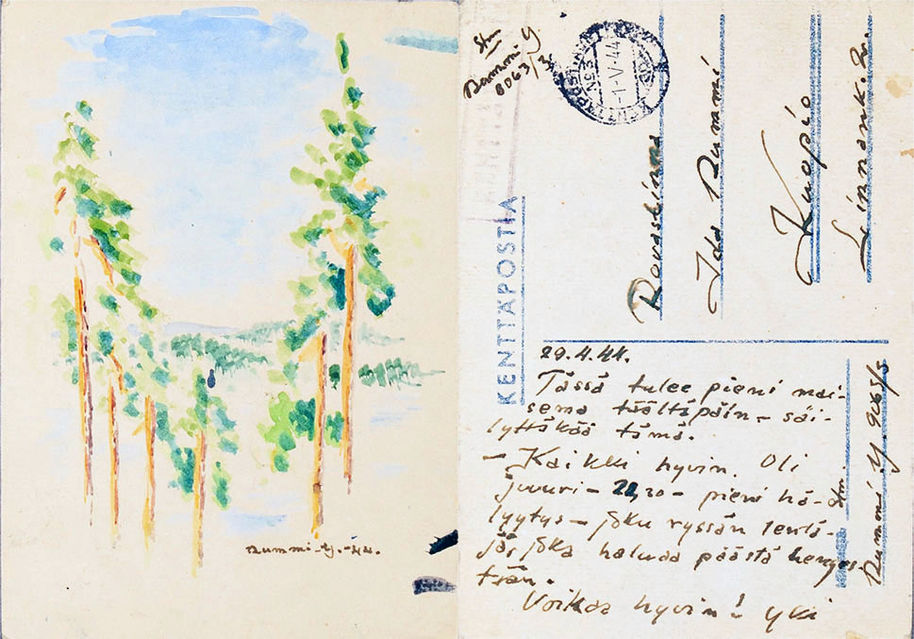 Rummi-Y.-44.
Stm
Rummi Y
8063/3
KENTTÄPOSTIA
1-V-44
Rouva
Ida Rummi
Kuopio
Linnank.
29.4.44.
Tässä tulee pieni mai-
sema täältäpäin – säi-
lyttäkää tämä.
– Kaikki hyvin. Oli
juuri – 22,20 – pieni hä-
lyytys – joku ryssän lentä-
jä, joka haluaa päästä henges-
tään.
Voikaa hyvin! Yki
Stm
Rummi Y